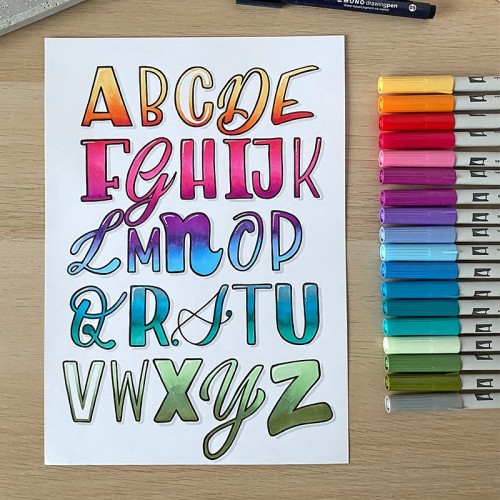 MONO drawingpen
ABCDE
FGHIJK
LMnOP
QRSTU
VWXyZ